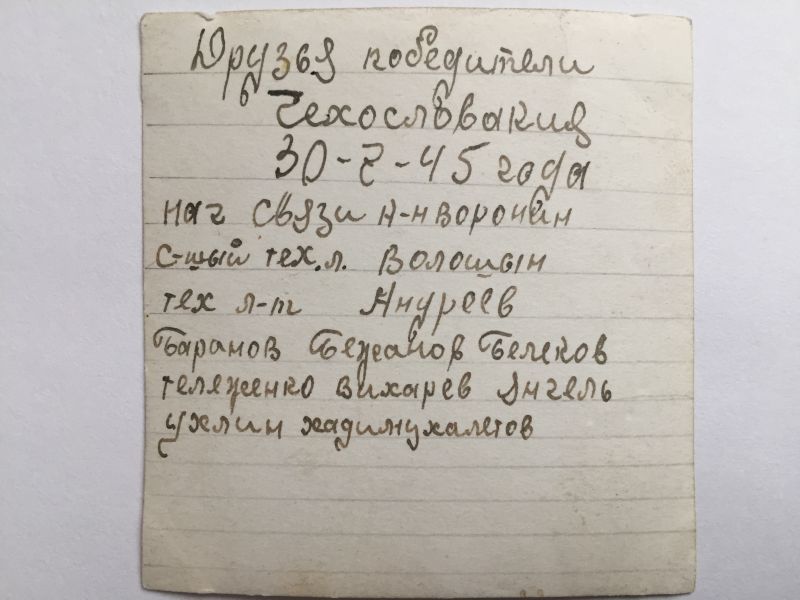 Друзья победители
Чехословакия
30-7-45 года
нач связи к-н Воронин
с-шый тех.л. Волошын
тех л-т Андреев
Баранов Бежанов Белеков
теляженко Вихарев Янгель
ухлин хадимухалетов